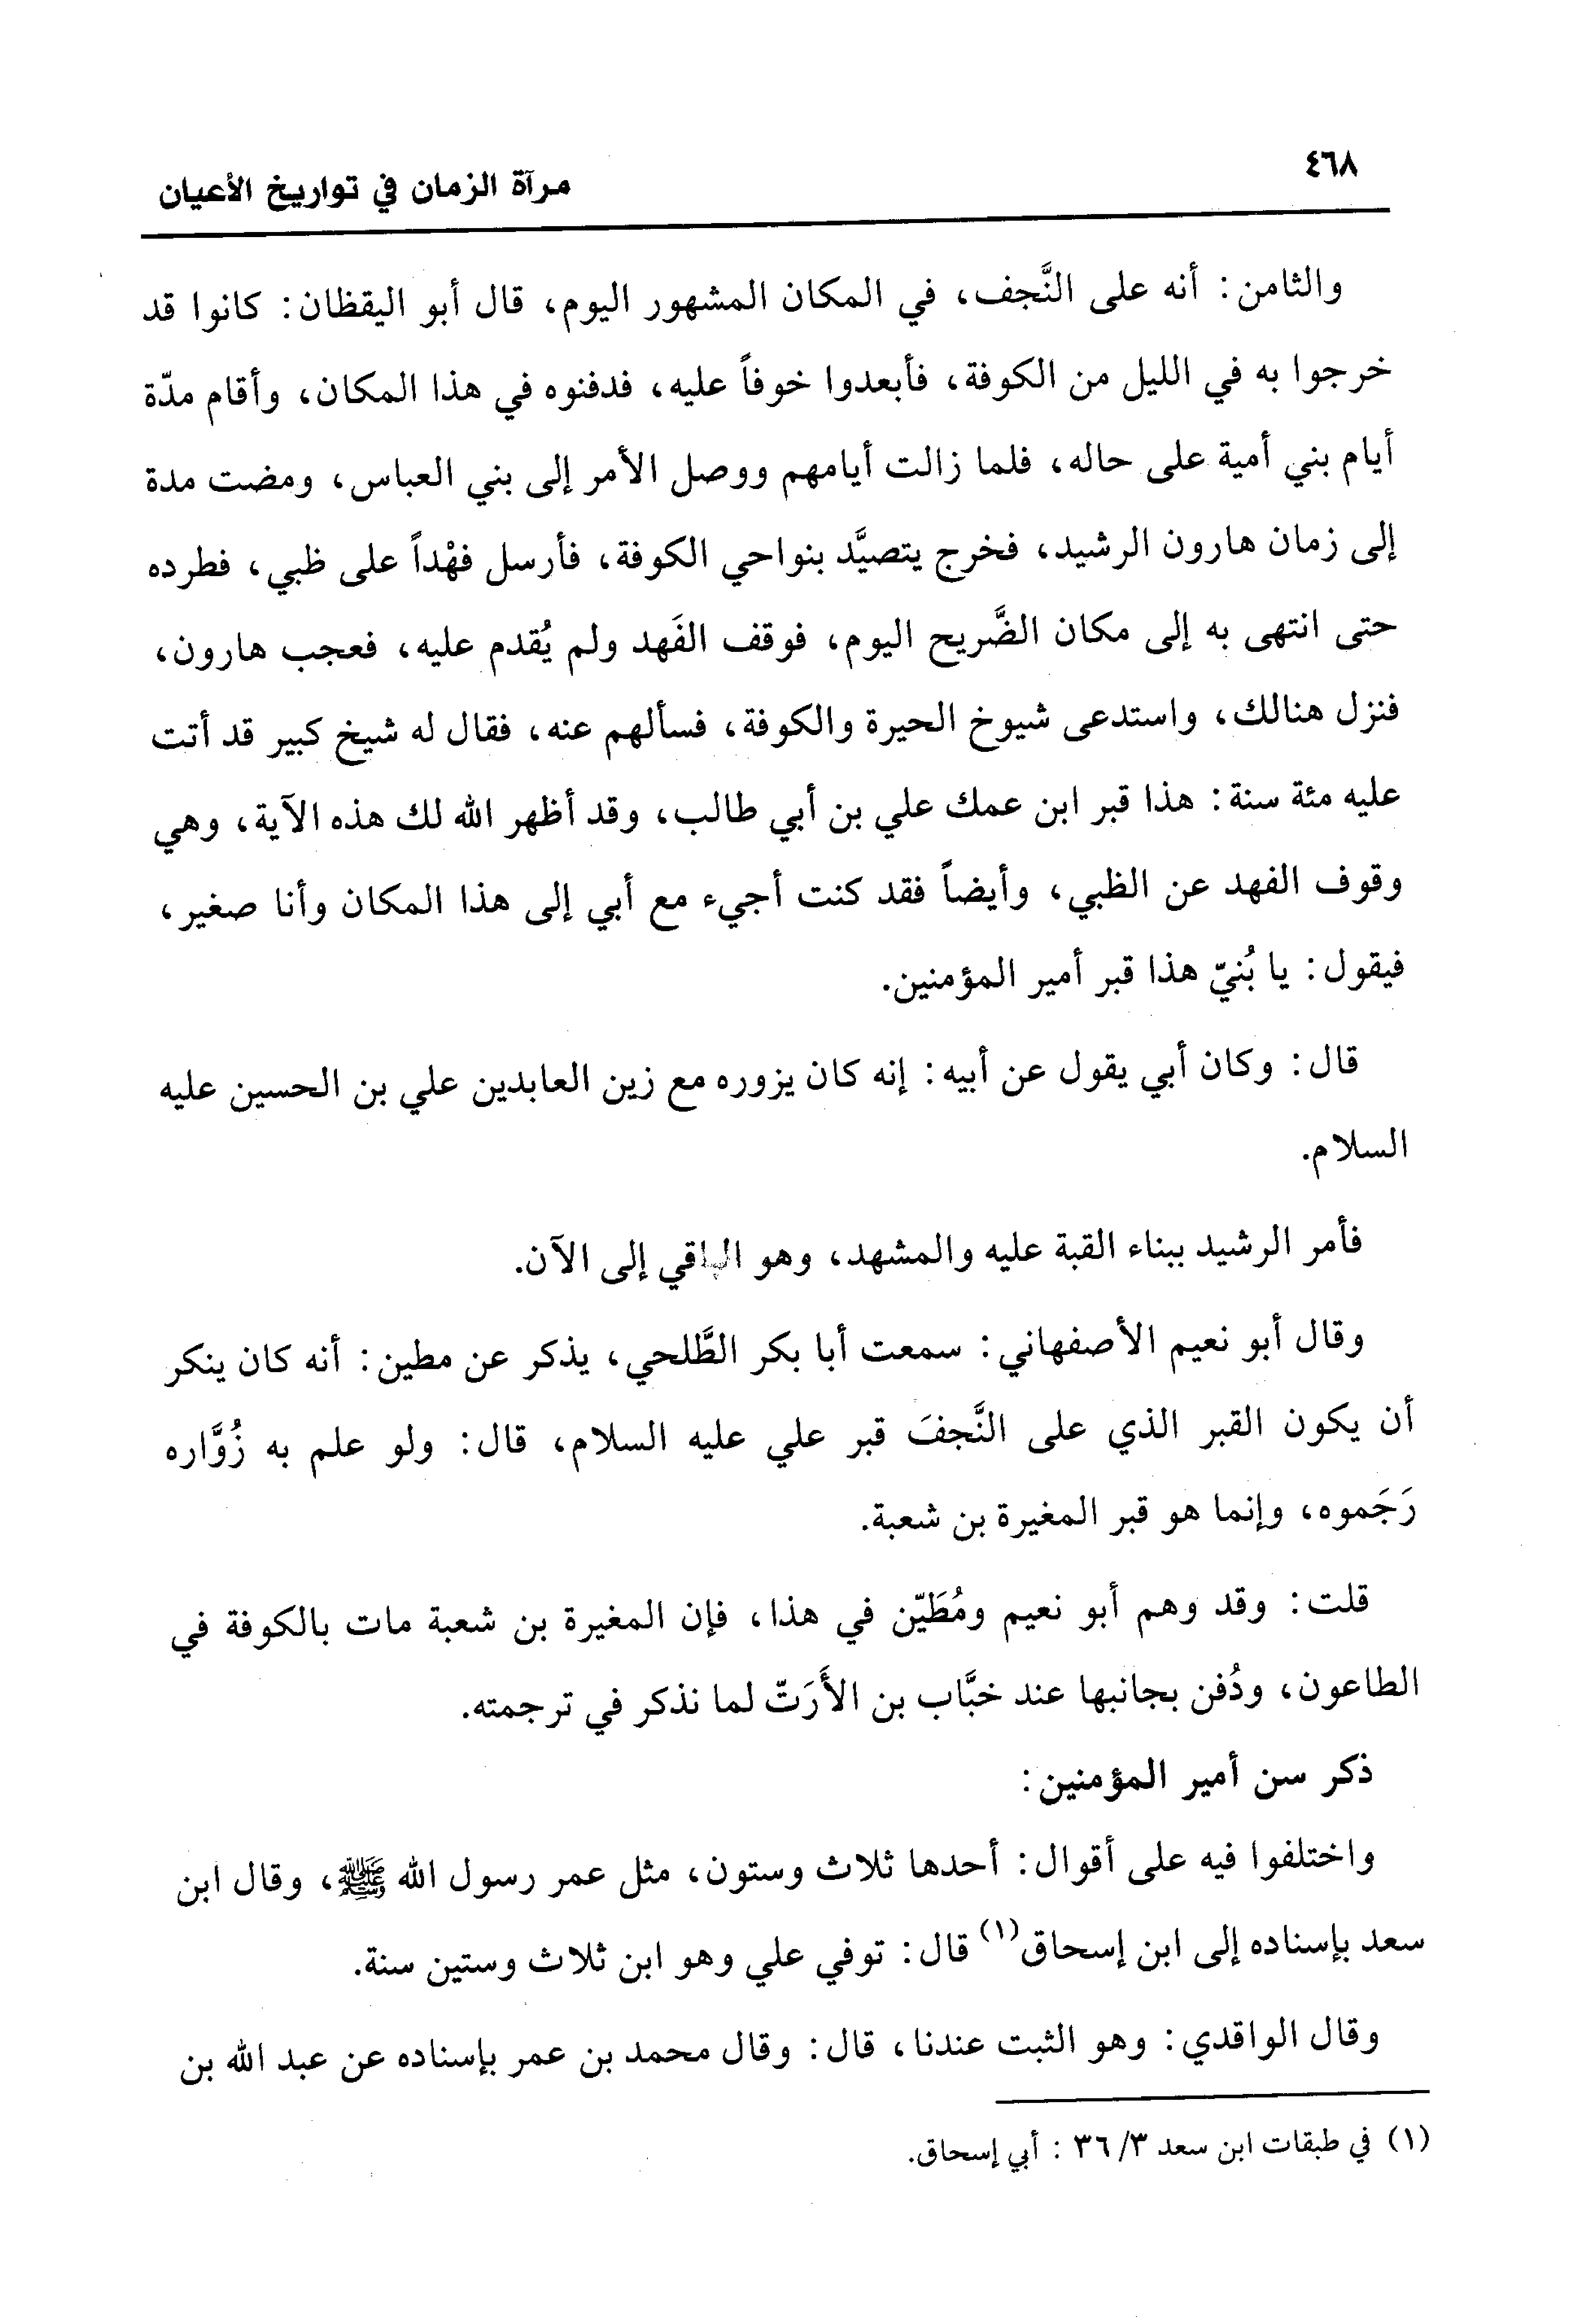 ٤٦٨
مرآة الزمان في تواريخ الأعيان
والثامن: أنه على النَّجف، في المكان المشهور اليوم، قال أبو اليقظان: كانوا قد
خرجوا به في الليل من الكوفة، فأبعدوا خوفاً عليه، فدفنوه في هذا المكان، وأقام مدّة
أيام بني أمية على حاله، فلما زالت أيامهم ووصل الأمر إلى بني العباس، ومضت مدة
إلى زمان هارون الرشيد، فخرج يتصيَّد بنواحي الكوفة، فأرسل فهْداً على ظبي، فطرده
حتى انتهى به إلى مكان الضَّريح اليوم، فوقف الفَهد ولم يُقدم عليه، فعجب هارون،
فنزل هنالك، واستدعى شيوخ الحيرة والكوفة، فسألهم عنه، فقال له شيخ كبير قد أتت
عليه مئة سنة: هذا قبر ابن عمك علي بن أبي طالب، وقد أظهر الله لك هذه الآية، وهي
وقوف الفهد عن الظبي، وأيضاً فقد كنت أجيء مع أبي إلى هذا المكان وأنا صغير،
فيقول: يا بُنيّ هذا قبر أمير المؤمنين.
قال: وكان أبي يقول عن أبيه: إنه كان يزوره مع زين العابدين علي بن الحسين عليه
السلام.
فأمر الرشيد ببناء القبة عليه والمشهد، وهو الباقي إلى الآن.
وقال أبو نعيم الأصفهاني: سمعت أبا بكر الطَّلحي، يذكر عن مطين: أنه كان ينكر
أن يكون القبر الذي على النَّجفَ قبر علي عليه السلام، قال: ولو علم به زُوَّاره
رَجَموه، وإنما هو قبر المغيرة بن شعبة.
قلت: وقد وهم أبو نعيم ومُطَيّن في هذا، فإن المغيرة بن شعبة مات بالكوفة في
الطاعون، ودُفن بجانبها عند خبَّاب بن الأَرَتّ لما نذكر في ترجمته.
ذكر سن أمير المؤمنين:
واختلفوا فيه على أقوال: أحدها ثلاث وستون، مثل عمر رسول الله ﷺ، وقال ابن
سعد بإسناده إلى ابن إسحاق(١) قال: توفي علي وهو ابن ثلاث وستين سنة.
وقال الواقدي: وهو الثبت عندنا، قال: وقال محمد بن عمر بإسناده عن عبد الله بن
(١) في طبقات ابن سعد ٣/ ٣٦ : أبي إسحاق.